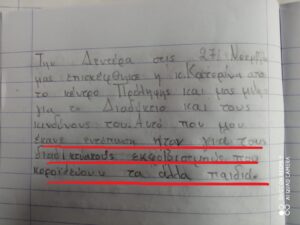 Την Δευτέρα στις 27 Νοεμβρ
μας επισκέφθηκε η κ. Κατερίνα από
το κέντρο Πρόληψης και μας μίλησ
για το Διαδύκτιο και τους
κινδύνους του. Αυτό που μου
έκανε εντύπωση ήταν για τους
εκφοβιστικούς που
κοροϊδεύουν τα άλλα παιδιά.